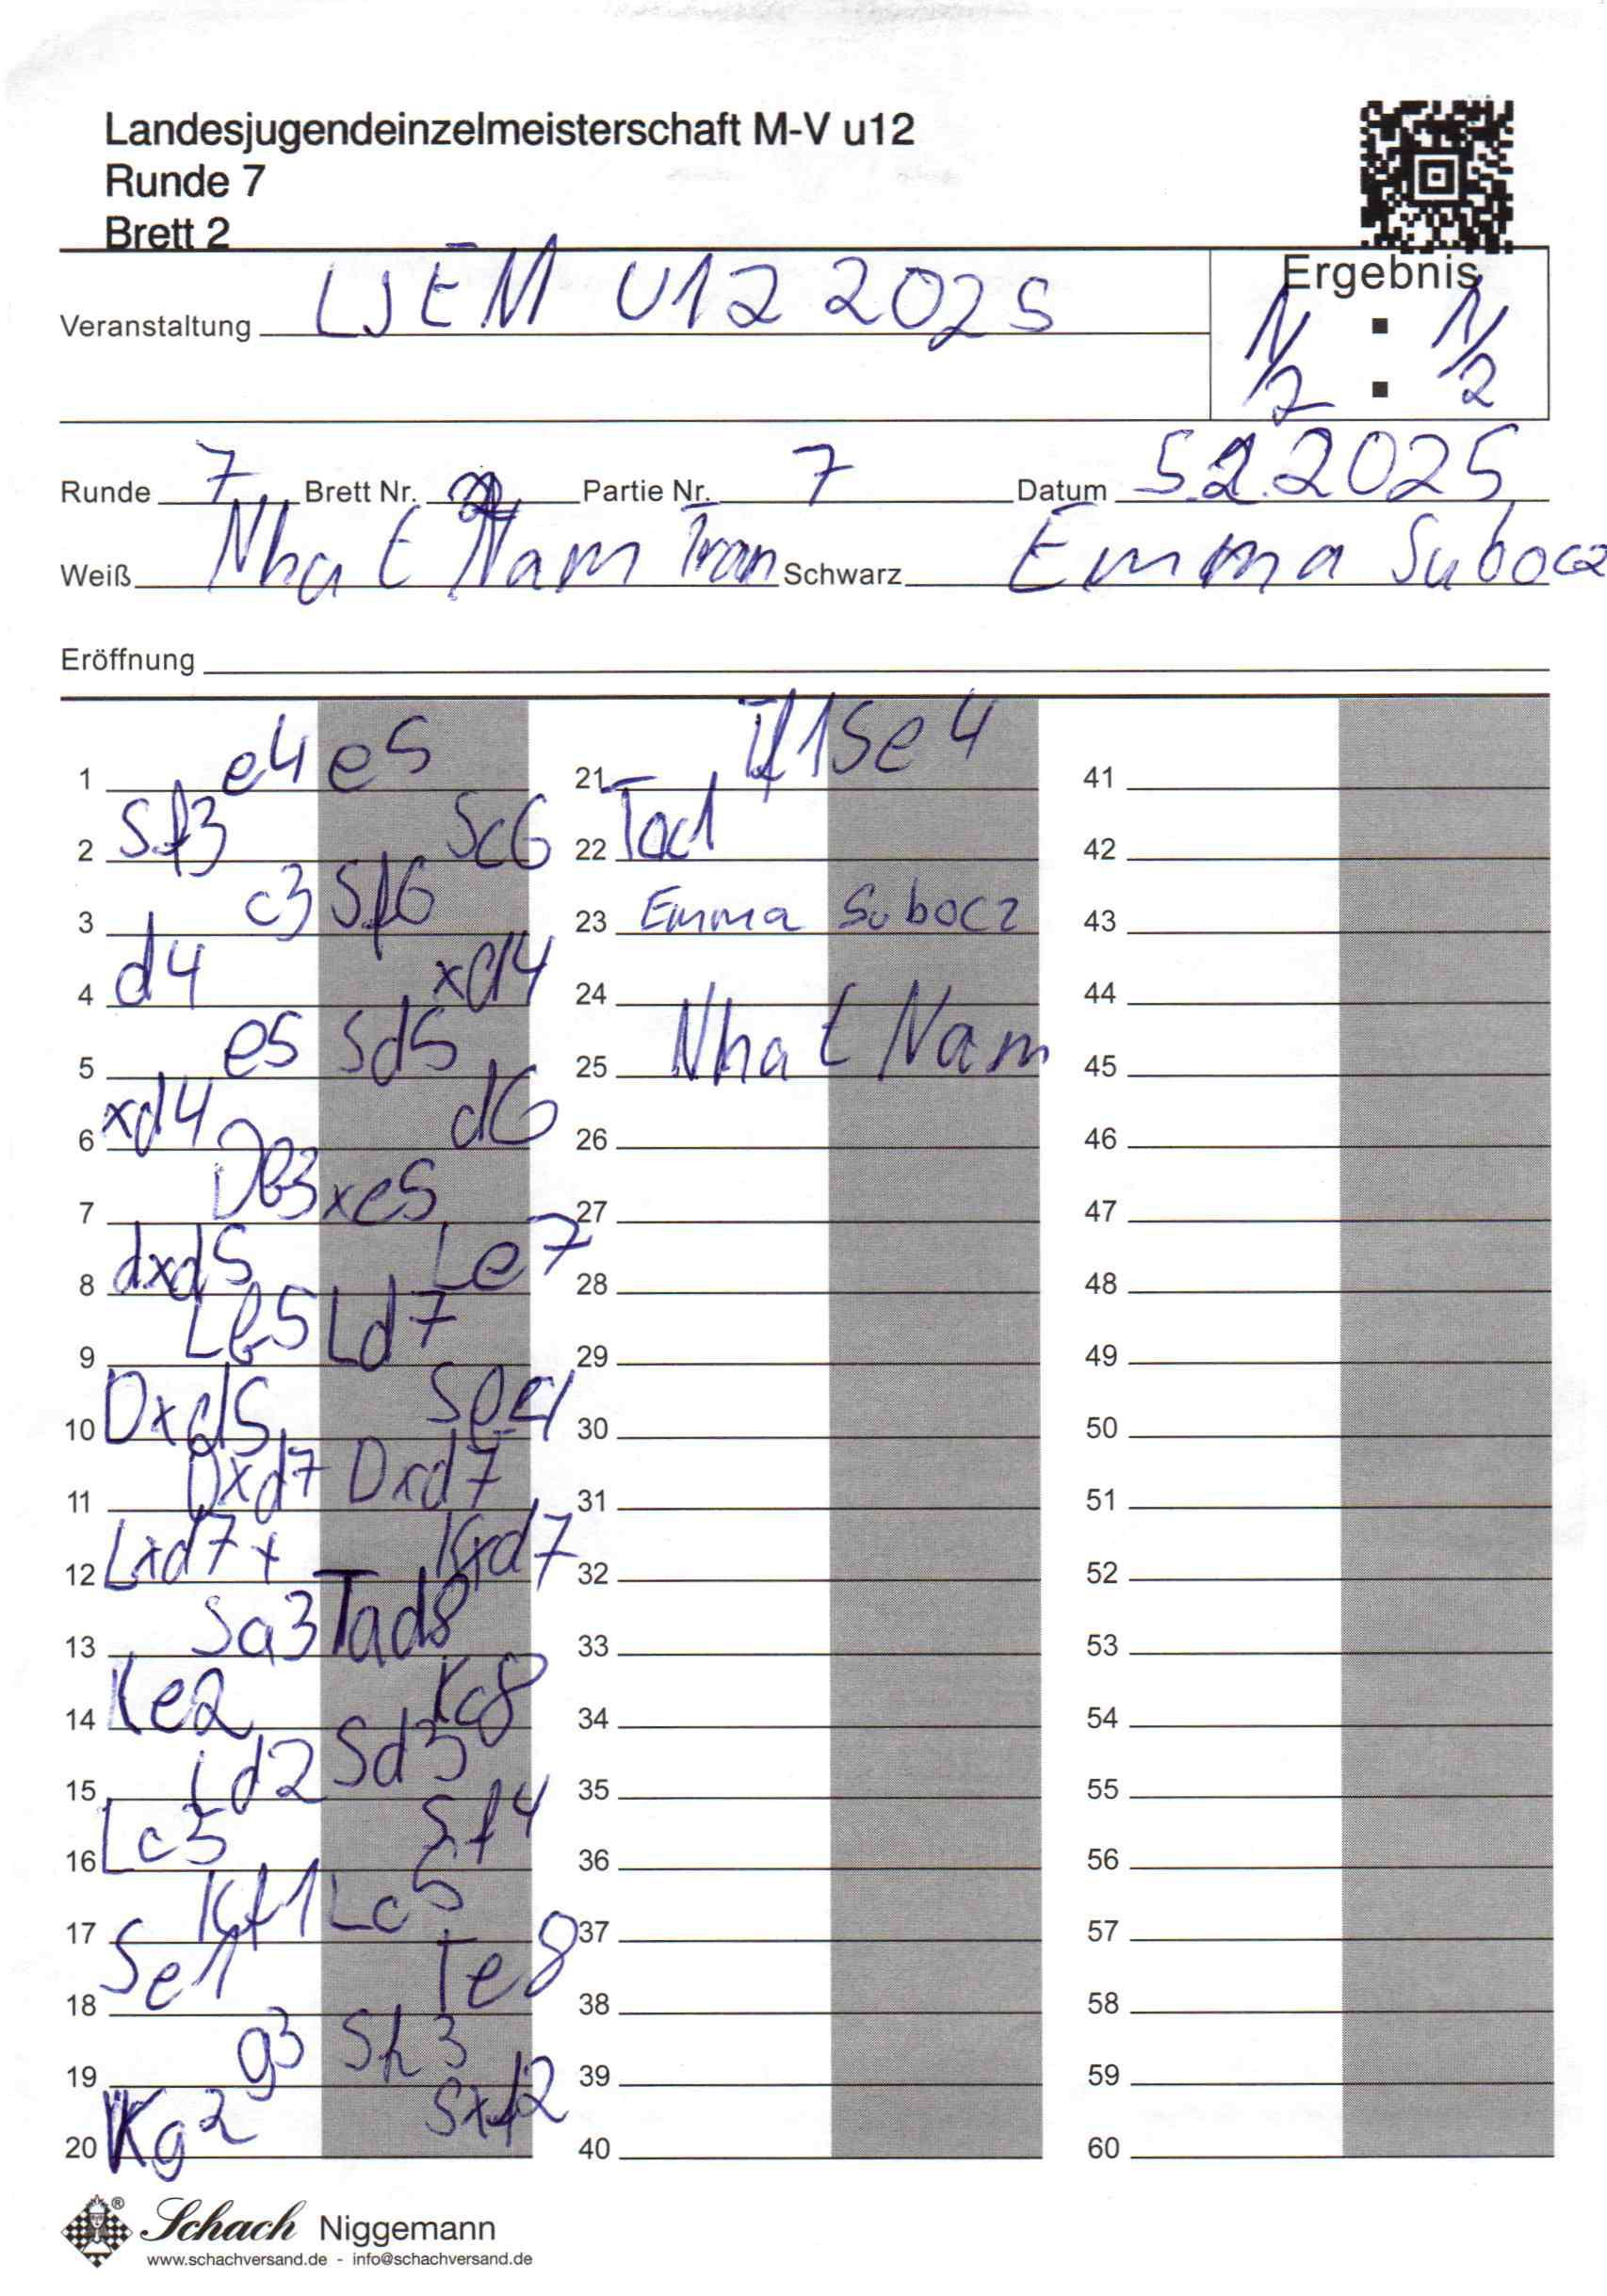 Landesjugendeinzelmeisterschaft M-V u12
Runde 7
Brett 2
Ergebnis
Veranstaltung LJEM U12 2025
1/2 : 1/2
Runde 7 Brett Nr. 2 Partie Nr. 7 Datum 5.2.2025
Weiß Nhat Nam Tran Schwarz Emma Subocz
Eröffnung
1 e4 e5
2 Sf3 Sc6
3 c3 Sf6
4 d4 xd4
5 e5 Sd5
6 xd4 d6
7 Db3 xe5
8 dxd5 Le7
9 Lb5 Ld7
10 Dxd5
11 Dxd7 Dxd7
12 Lxd7+ Kxd7
13 Sa3 Tad8
14 Ke2 Kc8
15 Ld2 Sd3
16 Lc3 Sf4
17 Kf1 Lc5
18 Se1 Te8
19 g3 Sh3
20 Kg2 Sxf2
21 Tf1 Se4
22
23 Emma Subocz
24
25 Nhat Nam
26
27
28
29
30
31
32
33
34
35
36
37
38
39
40
41
42
43
44
45
46
47
48
49
50
51
52
53
54
55
56
57
58
59
60
Schach Niggemann
www.schachversand.de - info@schachversand.de